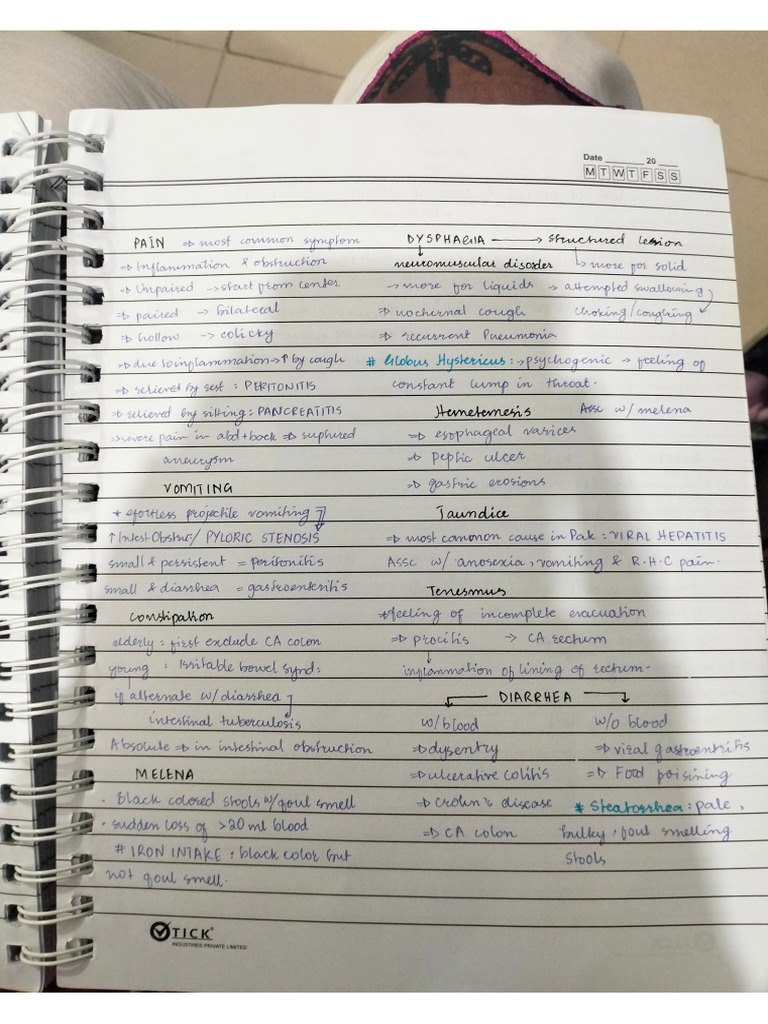 Date 20
M T W T F S S
PAIN ⇒ most common symptom
⇒ Inflammation & obstruction
⇒ Unpaired → start from center
⇒ paired → bilateral
⇒ hollow → colicky
⇒ due to inflammation → ↑ by cough
⇒ relieved by rest : PERITONITIS
⇒ relieved by sitting : PANCREATITIS
→ severe pain in abd + back ⇒ ruptured
aneurysm
VOMITING
* effortless projectile vomiting
↑ Intest Obstruc/ PYLORIC STENOSIS
small & persistent = peritonitis
small & diarrhea = gastroenteritis
Constipation
elderly : first exclude CA colon
young : Irritable bowel synd:
if alternate w/ diarrhea
intestinal tuberculosis
Absolute ⇒ in intestinal obstruction
MELENA
· Black colored stools w/ foul smell
· sudden loss of >20 ml blood
# IRON INTAKE : black color but
not foul smell.
DYSPHAGIA → structured lesion
neuromuscular disorder → more for solid
→ more for liquids → attempted swallowing
⇒ nocturnal cough choking/coughing
⇒ recurrent Pneumonia
# Globus Hystericus : → psychogenic → feeling of
constant lump in throat.
Hemetemesis Assc w/ melena
⇒ esophageal varices
⇒ peptic ulcer
⇒ gastric erosions
Jaundice
⇒ most common cause in Pak = VIRAL HEPATITIS
Assc w/ anorexia, vomiting & R.H.C pain.
Tenesmus
⇒ feeling of incomplete evacuation
⇒ procitis → CA rectum
inflammation of lining of rectum.
DIARRHEA
w/ blood w/o blood
⇒ dysentry ⇒ viral gastroentritis
⇒ ulcerative colitis ⇒ Food poisining
⇒ Crohn's disease * Steatorrhea : pale,
⇒ CA colon bulky, foul smelling
stools
TICK®
INDUSTRIES PRIVATE LIMITED